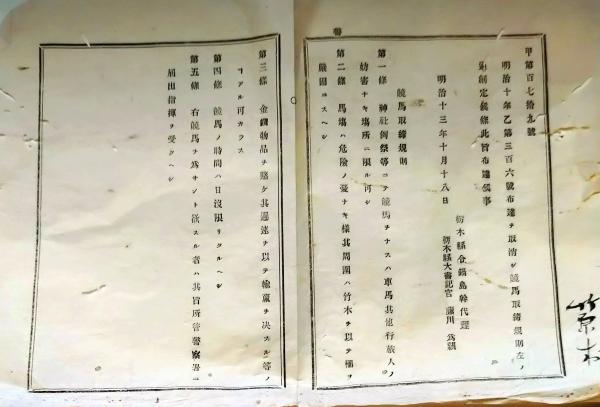 警
甲第百七拾九號
明治十年乙第三百六號布達ヲ取消シ競馬取締規則左ノ
通制定候條此旨布達候事
明治十三年十月十八日
栃木縣令鍋島幹代理
栃木縣大書記官 藤川爲親
競馬取締規則
第一條 神社例祭等ニテ競馬ヲナスハ車馬其他行旅人ノ
妨害ナキ塲所ニ限ル可シ
第二條 馬塲ハ危險ノ憂ナキ樣其周圍ハ竹木ヲ以テ極ヲ
嚴固ニスヘシ
第三條 金錢物品ヲ賭シ其遲速ヲ以テ輸贏ヲ决スル等ノ
ヿアル可カラス
第四條 競馬ノ時間ハ日沒限リタルヘシ
第五條 右競馬ヲ爲サント欲スル者ハ其旨所管警察署ニ
屆出指揮ヲ受クヘシ